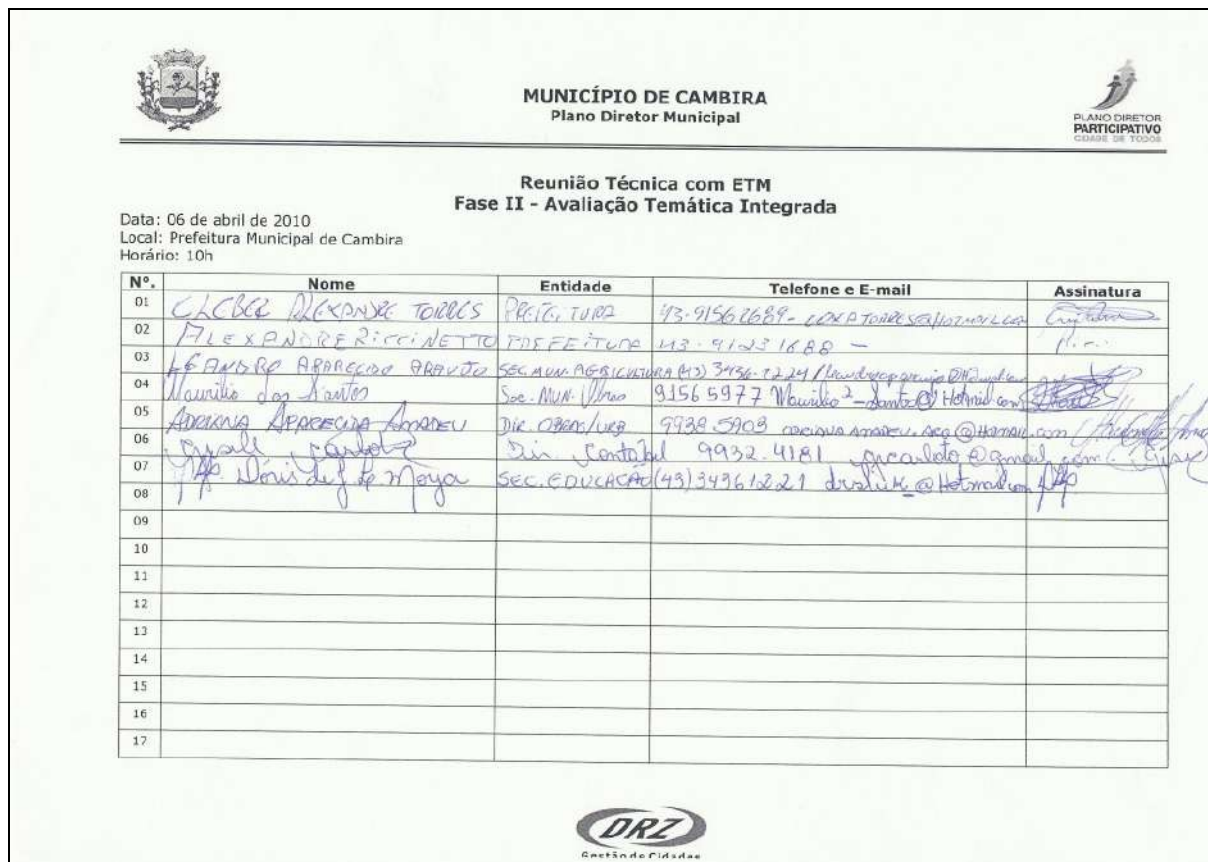 MUNICÍPIO DE CAMBIRA
Plano Diretor Municipal
PLANO DIRETOR
PARTICIPATIVO
CIDADE DE TODOS
Reunião Técnica com ETM
Fase II - Avaliação Temática Integrada
Data: 06 de abril de 2010
Local: Prefeitura Municipal de Cambira
Horário: 10h
Nº. Nome Entidade Telefone e E-mail Assinatura
01 CLEBER ALEXANDRE TORRES PREFEITURA 43-91562689-
02 ALEXANDRE RICCI NETTO PREFEITURA 43-91231688 -
03 LEANDRO APARECIDO ARAUJO SEC. MUN. AGRICULTURA (43) 3436-1224 /
04 Maurilio dos Santos Sec. MUN. Obras 91565977 Maurilio2_santos@Hotmail.com
05 ADRIANA APARECIDA AMADEU DIR. OBRAS/URB 9938 5903 ADRIANA AMADEU.ARQ@HOTMAIL.com
06 Carloto Div. Contabil 9932.4181 @gmail.com
07 Dóris de Moya SEC. EDUCAÇÃO (43) 34361221 @Hotmail.com
08
09
10
11
12
13
14
15
16
17
DRZ
Gestão de Cidades